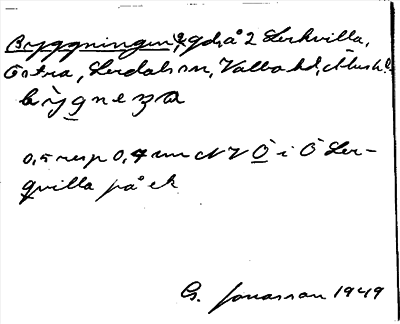 Byggningen, 2 gdr å 2 Lerkvilla,
Östra, Lerdals sn, Valbo hd, Älvsb. l.
bỳgneza
0,5 resp 0,4 km NV Ö i Ö Ler-
qvilla på ek
G. Jonasson 1949